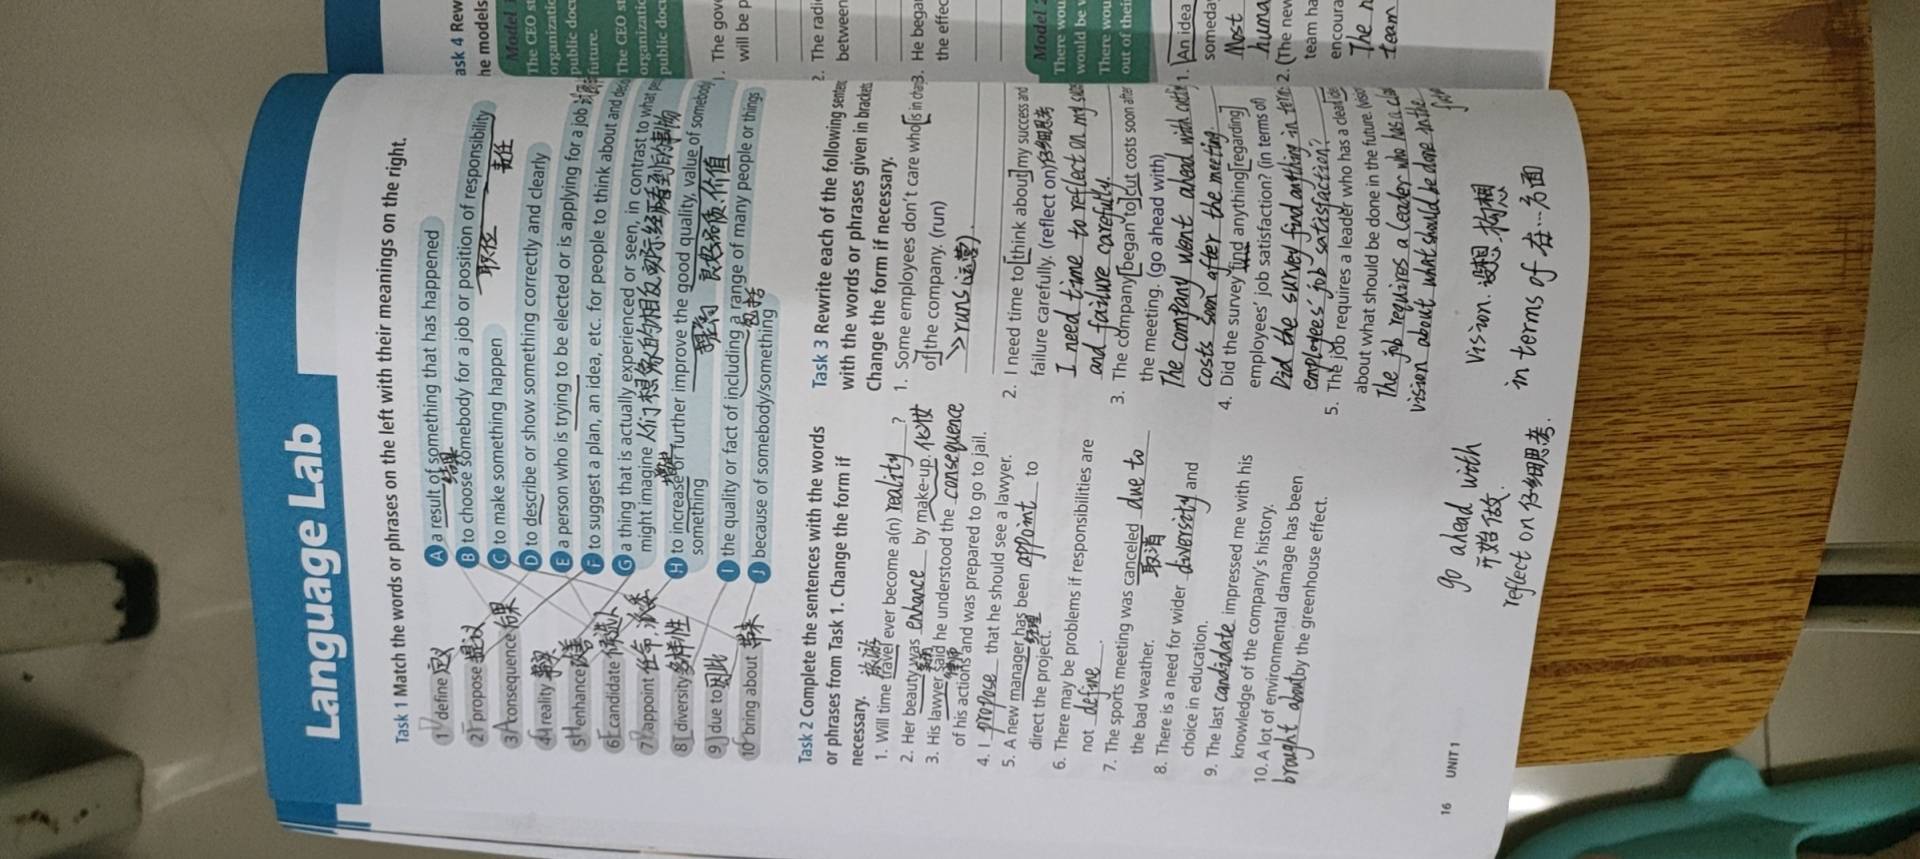 Language Lab
Task 1 Match the words or phrases on the left with their meanings on the right.
1 D define 定义
2 F propose 提议
3 A consequence 后果
4 G reality
5 H enhance 改善
6 E candidate 候选人
7 B appoint 任命,派委
8 I diversity 多样性
9 J due to 因此
10 C bring about 带来
A a result of something that has happened
结果
B to choose somebody for a job or position of responsibility
职位 责任
C to make something happen
D to describe or show something correctly and clearly
E a person who is trying to be elected or is applying for a job
F to suggest a plan, an idea, etc. for people to think about and
G a thing that is actually experienced or seen, in contrast to what
might imagine 人们想象的相反或实际经历看到的事物
H to increase or further improve the good quality, value of somebody
something 提高 良好品质,价值
I the quality or fact of including a range of many people or things
包括
J because of somebody/something
Task 2 Complete the sentences with the words
or phrases from Task 1. Change the form if
necessary.
旅游
1. Will time travel ever become a(n) reality ?
2. Her beauty was enhance by make-up. 化妆
3. His lawyer said he understood the consequence
律师
of his actions and was prepared to go to jail.
4. I propose that he should see a lawyer.
5. A new manager has been appoint to
经理
direct the project.
6. There may be problems if responsibilities are
not define .
7. The sports meeting was canceled due to
取消
the bad weather.
8. There is a need for wider diversity and
choice in education.
9. The last candidate impressed me with his
knowledge of the company's history.
10. A lot of environmental damage has been
brought about by the greenhouse effect.
Task 3 Rewrite each of the following
with the words or phrases given in
Change the form if necessary.
1. Some employees don't care who [is in
of] the company. (run)
→ runs (运营).
2. I need time to [think about] my success and
failure carefully. (reflect on) 仔细思考
I need time to reflect on my
and failure carefully.
3. The company [began to] cut costs soon after
the meeting. (go ahead with)
The company went ahead with
costs soon after the meeting
4. Did the survey find anything [regarding]
employees' job satisfaction? (in terms of)
Did the survey find anything in
employees' job satisfaction?
5. The job requires a leader who has a clear
about what should be done in the future.
The job requires a leader who has a
vision about what should be done in the
go ahead with
开始做.
reflect on 仔细思考.
vision. 构想
in terms of 在…方面
16 UNIT 1
ask 4
he models
Model
The CEO
public
future.
The CEO
public
1. The
will be
2. The
between
3. He began
the
Model
There
would be
There
out of their
1. An idea
someday
Most
2. (The
team
The
team